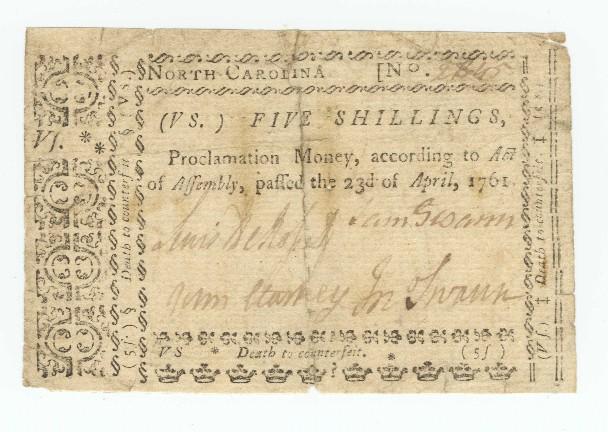 NORTH CAROLINA [No.
(VS.) FIVE SHILLINGS,
Proclamation Money, according to Act
of Assembly, passed the 23d of April, 1761.
Lewis De Rosset Sam Swann
Jno Swann
VS * Death to counterfeit. * (5ſ)
Vſ. * *
(5ſ.) § Death to counterfeit § (VS)
(Vſ.) ‡ Death to counterfeit. ‡